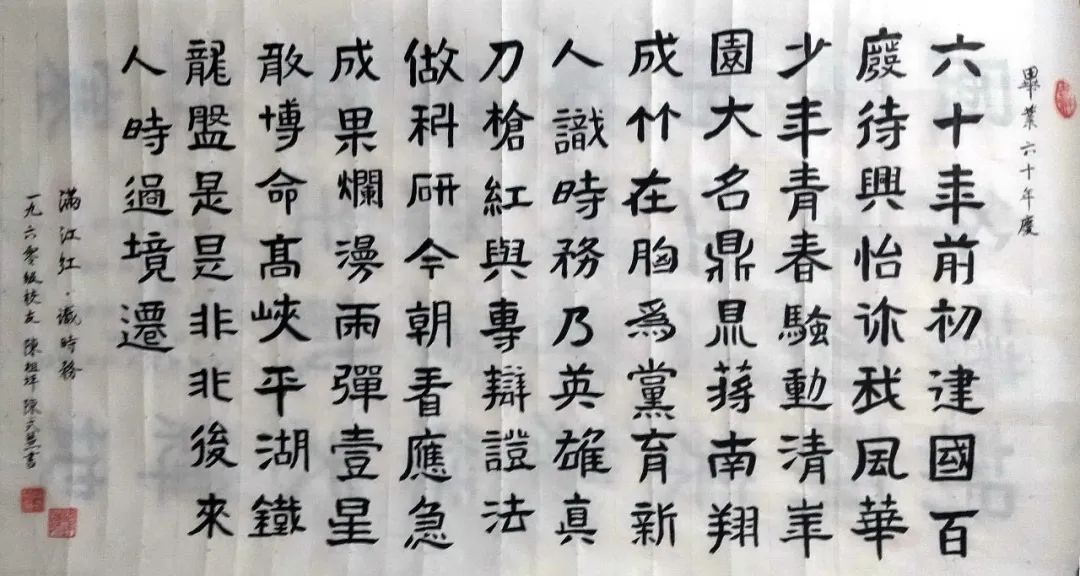 畢業六十年慶
六十年前初建國百
廢待興怡你我風華
少年青春騷動清華
園大名鼎鼎蔣南翔
成竹在胸爲黨育新
人識時務乃英雄真
刀槍紅與專辯證法
做科研今朝看應急
成果爛漫兩彈壹星
敢博命髙峽平湖鐵
龍盤是是非非後來
人時過境遷
滿江紅·識時務
一九六零級校友 陳祖坪 陳書